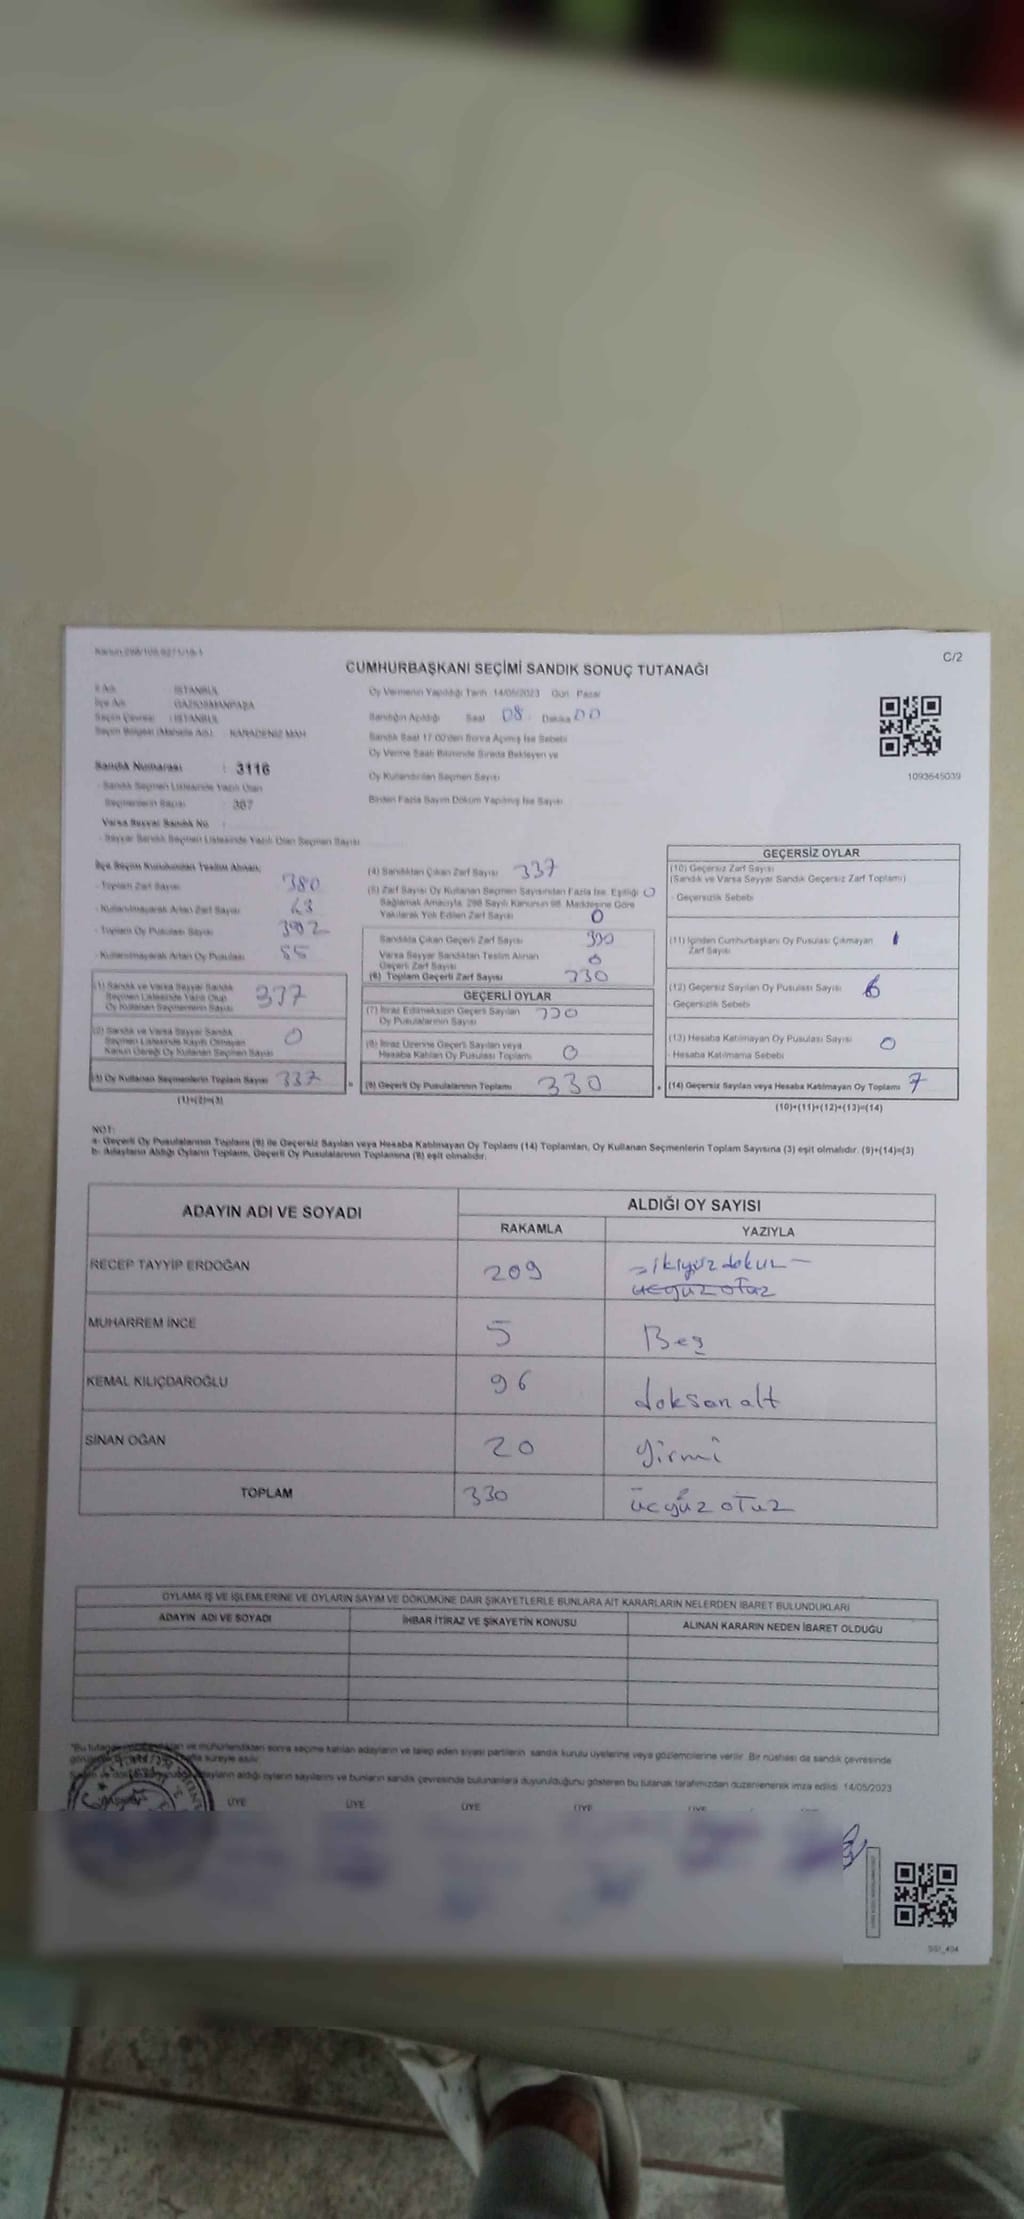 C/2
CUMHURBAŞKANI SEÇİMİ SANDIK SONUÇ TUTANAĞI
İl Adı : İSTANBUL
İlçe Adı : GAZİOSMANPAŞA
Seçim Çevresi : İSTANBUL
Seçim Bölgesi (Mahalle Adı) : KARADENİZ MAH
Sandık Numarası : 3116
- Sandık Seçmen Listesinde Yazılı Olan
Seçmenlerin Sayısı : 387
Varsa Seyyar Sandık No
- Seyyar Sandık Seçmen Listesinde Yazılı Olan Seçmen Sayısı
Oy Vermenin Yapıldığı Tarih 14/05/2023 Gün Pazar
Sandığın Açıldığı Saat 08 Dakika 00
Sandık Saat 17.00'den Sonra Açılmış İse Sebebi
Oy Verme Saati Bitiminde Sırada Bekleyen ve
Oy Kullandırılan Seçmen Sayısı
Birden Fazla Sayım Döküm Yapılmış İse Sayısı
1093645039
İlçe Seçim Kurulundan Teslim Alınan;
- Toplam Zarf Sayısı 380
- Kullanılmayarak Artan Zarf Sayısı 43
- Toplam Oy Pusulası Sayısı 392
- Kullanılmayarak Artan Oy Pusulası 55
(1) Sandık ve Varsa Seyyar Sandık
Seçmen Listesinde Yazılı Olup
Oy Kullanan Seçmenlerin Sayısı 337
(2) Sandık ve Varsa Seyyar Sandık
Seçmen Listesinde Kayıtlı Olmayan
Kanun Gereği Oy Kullanan Seçmen Sayısı 0
(3) Oy Kullanan Seçmenlerin Toplam Sayısı 337
(1)+(2)=(3)
(4) Sandıktan Çıkan Zarf Sayısı 337
(5) Zarf Sayısı Oy Kullanan Seçmen Sayısından Fazla İse, Eşitliği 0
Sağlamak Amacıyla, 298 Sayılı Kanunun 98. Maddesine Göre
Yakılarak Yok Edilen Zarf Sayısı 0
Sandıkta Çıkan Geçerli Zarf Sayısı 330
Varsa Seyyar Sandıktan Teslim Alınan
Geçerli Zarf Sayısı 0
(6) Toplam Geçerli Zarf Sayısı 330
GEÇERLİ OYLAR
(7) İtiraz Edilmeksizin Geçerli Sayılan
Oy Pusulalarının Sayısı 330
(8) İtiraz Üzerine Geçerli Sayılan veya
Hesaba Katılan Oy Pusulası Toplamı 0
(9) Geçerli Oy Pusulalarının Toplamı 330
GEÇERSİZ OYLAR
(10) Geçersiz Zarf Sayısı
(Sandık ve Varsa Seyyar Sandık Geçersiz Zarf Toplamı)
- Geçersizlik Sebebi
(11) İçinden Cumhurbaşkanı Oy Pusulası Çıkmayan 1
Zarf Sayısı
(12) Geçersiz Sayılan Oy Pusulası Sayısı 6
- Geçersizlik Sebebi
(13) Hesaba Katılmayan Oy Pusulası Sayısı 0
- Hesaba Katılmama Sebebi
(14) Geçersiz Sayılan veya Hesaba Katılmayan Oy Toplamı 7
(10)+(11)+(12)+(13)=(14)
NOT:
a- Geçerli Oy Pusulalarının Toplamı (9) ile Geçersiz Sayılan veya Hesaba Katılmayan Oy Toplamı (14) Toplamları, Oy Kullanan Seçmenlerin Toplam Sayısına (3) eşit olmalıdır. (9)+(14)=(3)
b- Adayların Aldığı Oyların Toplamı, Geçerli Oy Pusulalarının Toplamına (9) eşit olmalıdır.
ADAYIN ADI VE SOYADI ALDIĞI OY SAYISI
RAKAMLA YAZIYLA
RECEP TAYYİP ERDOĞAN 209 ikiyüzdokuz
üçyüz otuz
MUHARREM İNCE 5 Beş
KEMAL KILIÇDAROĞLU 96 doksan altı
SİNAN OĞAN 20 yirmi
TOPLAM 330 üçyüz otuz
OYLAMA İŞ VE İŞLEMLERİNE VE OYLARIN SAYIM VE DÖKÜMÜNE DAİR ŞİKAYETLERLE BUNLARA AİT KARARLARIN NELERDEN İBARET BULUNDUKLARI
ADAYIN ADI VE SOYADI İHBAR İTİRAZ VE ŞİKAYETİN KONUSU ALINAN KARARIN NEDEN İBARET OLDUĞU
*Bu tutanak ve mühürlendikten sonra seçime katılan adayların ve talep eden siyasi partilerin sandık kurulu üyelerine veya gözlemcilerine verilir. Bir nüshası da sandık çevresinde
süreyle asılır.
adayların aldığı oyların sayılarını ve bunların sandık çevresinde bulunanlara duyurulduğunu gösteren bu tutanak tarafımızdan düzenlenerek imza edildi. 14/05/2023
BAŞKAN ÜYE ÜYE ÜYE ÜYE ÜYE